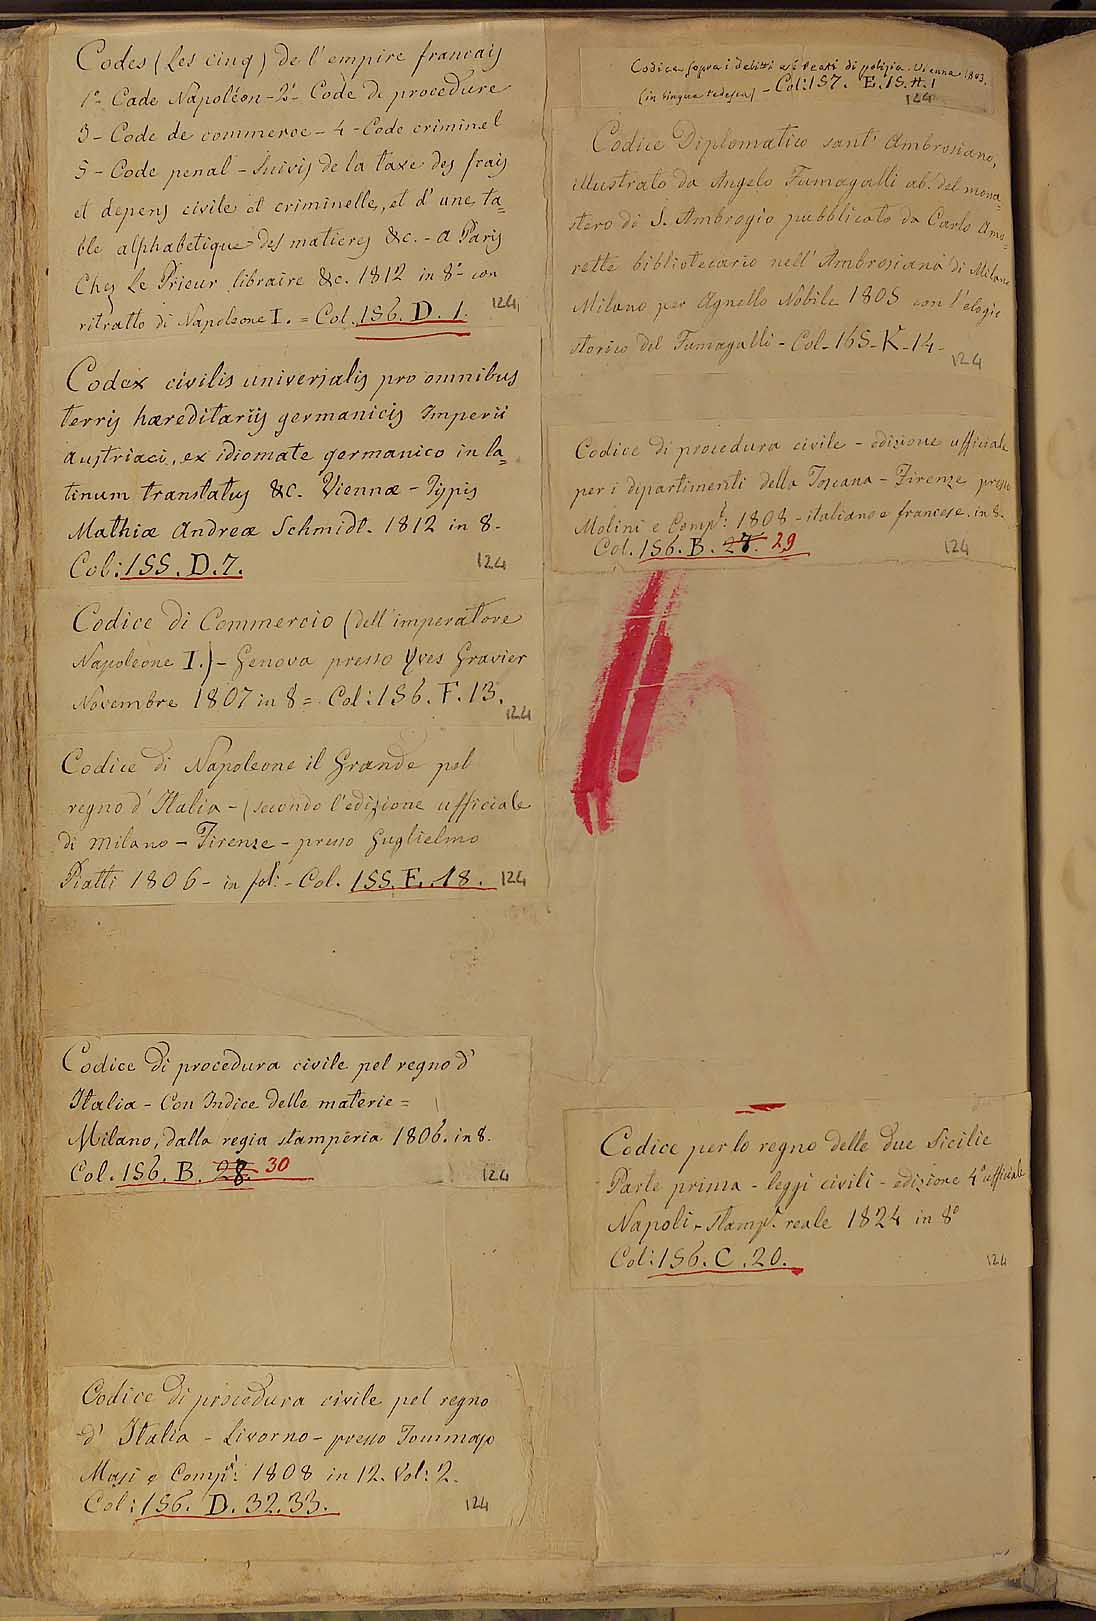 Codes (Les cinq) de l'empire francais
1º- Cade Napoléon - 2º- Code de procedure
3 - Code de commerce - 4 - Code criminel
5 - Code penal - Suivis de la taxe des frais
et depens civile et criminelle, et d'une ta=
ble alphabetique des matieres &c. - a Paris
Chez Le Prieur libraire &c. 1812 in 8º con
ritratto di Napoleone I. = Col. 156. D. 1. 124
Codex civilis universalis pro omnibus
terris hæreditariis germanicis Imperii
austriaci, ex idiomate germanico in la=
tinum translatus &c. Viennæ - Typis
Mathiæ Andreæ Schmidt. 1812 in 8 -
Col: 155. D. 7. 124
Codice di Commercio (dell'imperatore
Napoleone I.) - Genova presso Yves Gravier
Novembre 1807 in 8 = Col: 156. F. 13.
124
Codice di Napoleone il Grande pel
regno d'Italia - (secondo l'edizione ufficiale
di Milano - Firenze - presso Guglielmo
Piatti 1806 - in fol: - Col. 155. E. 18. 124
Codice di procedura civile pel regno d'
Italia - Con Indice delle materie =
Milano, dalla regia stamperia 1806. in 8.
Col. 156. B. 28. 30 124
Codice di procedura civile pel regno
d' Italia - Livorno - presso Tommaso
Masi e Comp: 1808 in 12. Vol: 2.
Col: 156. D. 32.33. 124
Codice sopra i delitti e i reati di polizia. Vienna 1803.
(in lingua tedesca) - Col: 157. E. 15. H. 1
124
Codice Diplomatico sant' Ambrosiano,
illustrato da Angelo Fumagalli ab. del mona=
stero di S. Ambrogio pubblicato da Carlo Amo=
rette bibliotecario nell'Ambrosiana di Milano
Milano per Agnello Nobile 1805 con l'elogio
storico del Fumagalli - Col. 165 - K - 14 -
124
Codice di procedura civile - edizione ufficiale
per i dipartimenti della Toscana - Firenze presso
Molini e Comp: 1808 - italiano e francese. in 8.
Col. 156. B. 27. 29 124
Codice per lo regno delle due Sicilie
Parte prima - leggi civili - edizione 4ª ufficiale
Napoli - stamp: reale 1824 in 8º
Col: 156. C. 20. 124